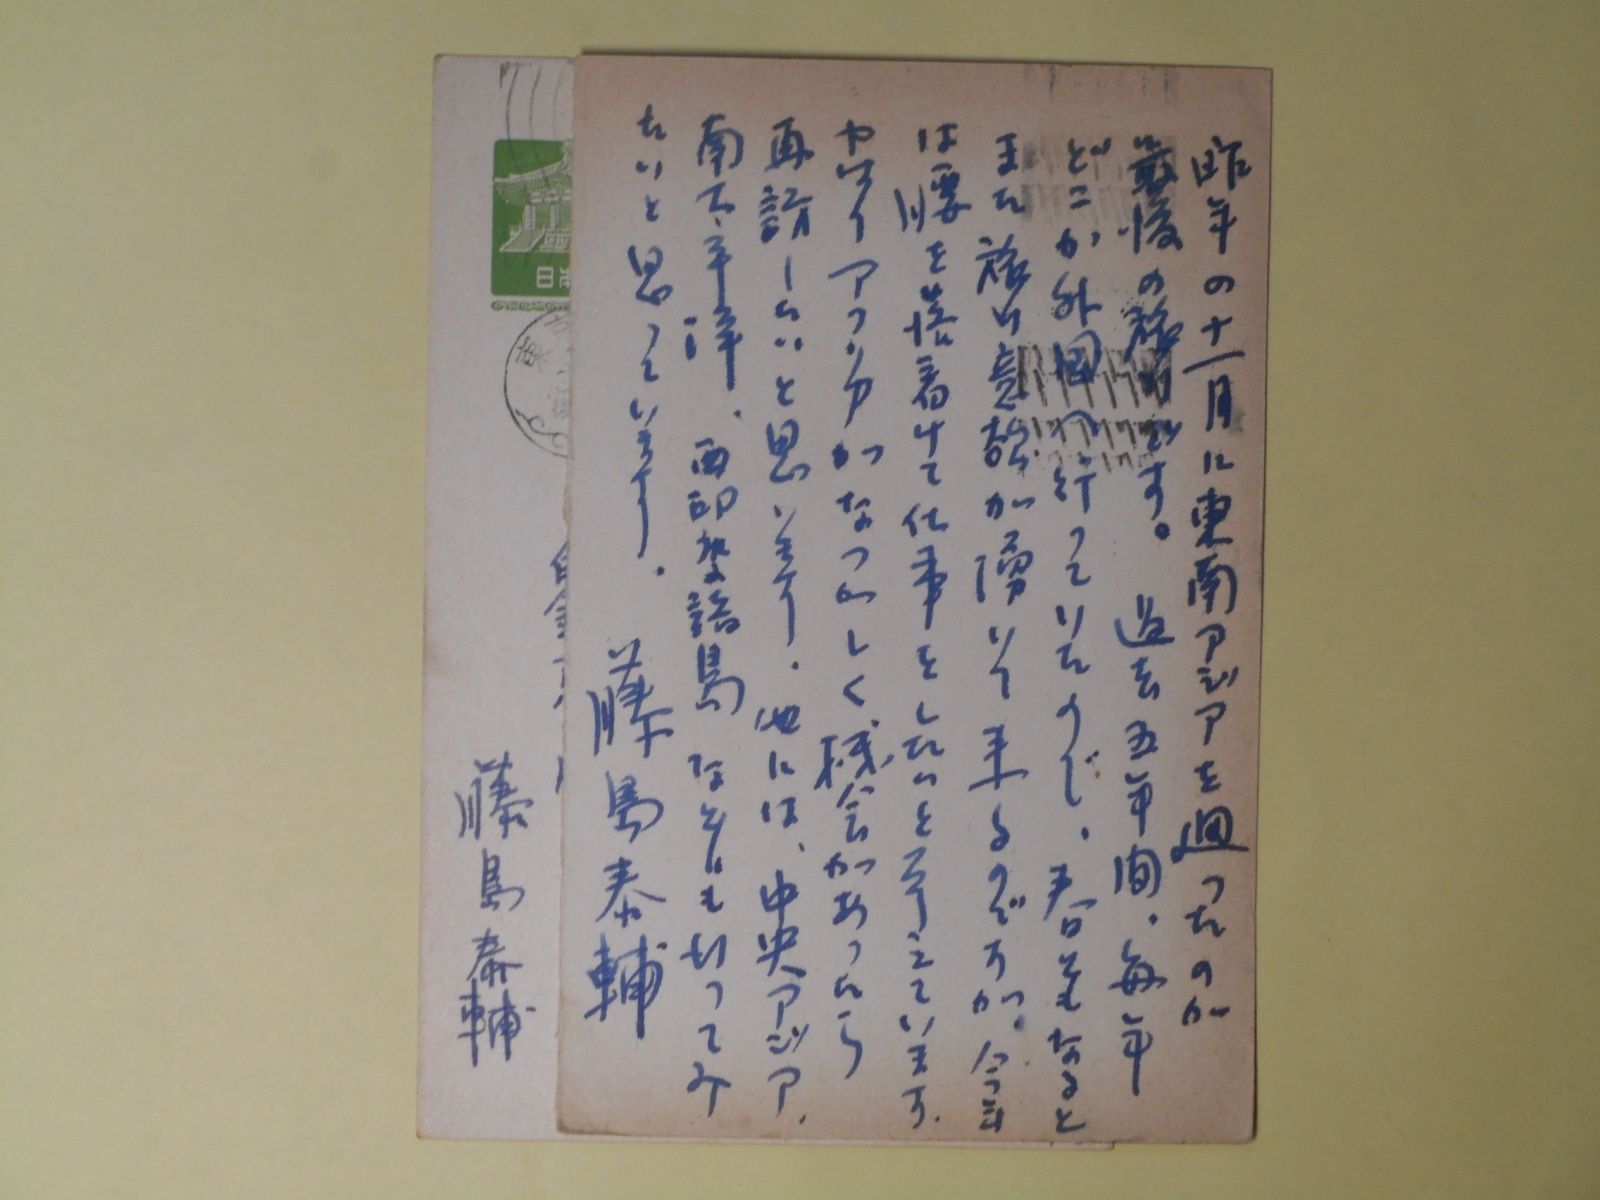 昨年の十一月に東南アジアを廻ったのが
最後の旅行です。過去五年間、毎年
どこか外国へ行っていたので、春ともなると
また旅行意欲が湧いて来るのですが。今年
は腰を落着けて仕事をしたいと考えています。
やはりアフリカがなつかしく機会があったら
再訪したいと思います。他には、中央アジア、
南太平洋、西印度諸島なども行ってみ
たいと思っています。
藤島泰輔
日本
東
藤島泰輔